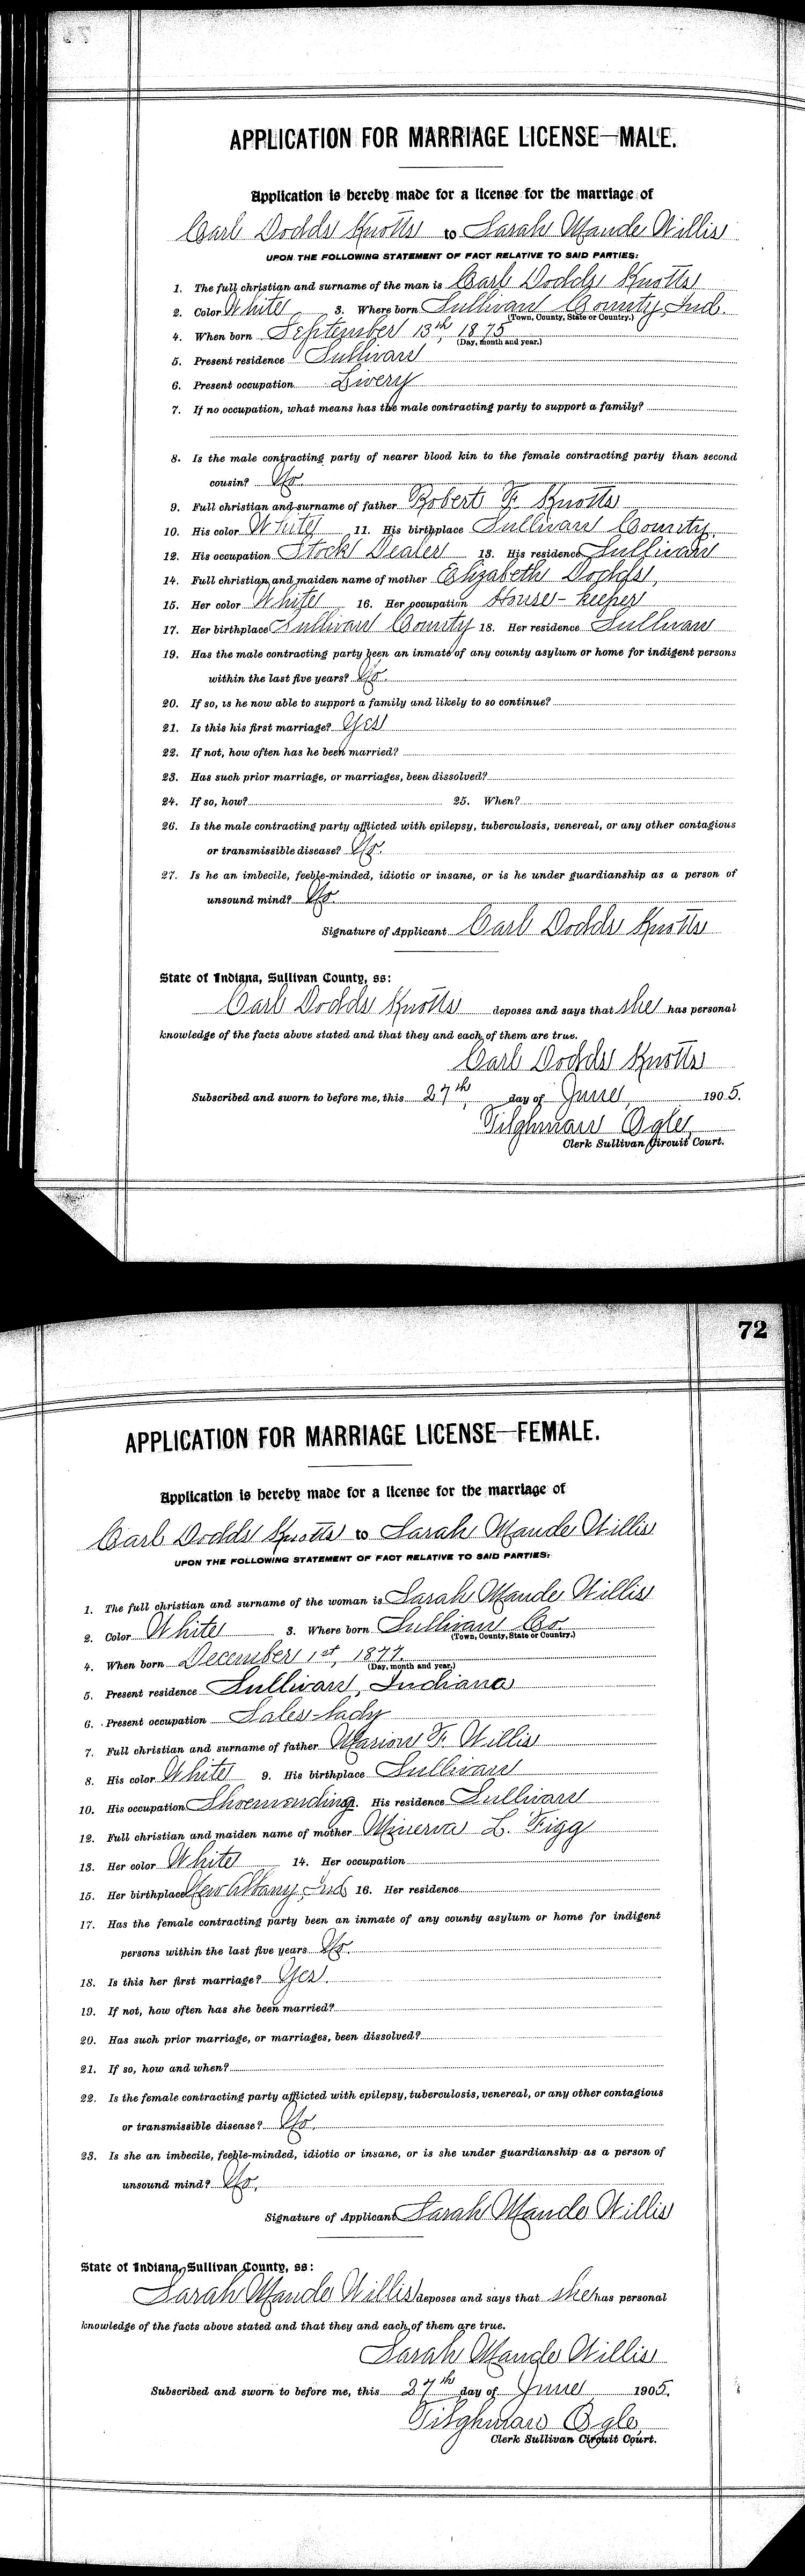 APPLICATION FOR MARRIAGE LICENSE—MALE.
Application is hereby made for a license for the marriage of
Carl Dodds Knotts to Sarah Maude Willis
UPON THE FOLLOWING STATEMENT OF FACT RELATIVE TO SAID PARTIES:
1. The full christian and surname of the man is Carl Dodds Knotts
2. Color White 3. Where born Sullivan County, Ind.
(Town, County, State or Country.)
4. When born September 13th, 1875
(Day, month and year.)
5. Present residence Sullivan
6. Present occupation Livery
7. If no occupation, what means has the male contracting party to support a family?
8. Is the male contracting party of nearer blood kin to the female contracting party than second
cousin? No.
9. Full christian and surname of father Robert F. Knotts
10. His color White 11. His birthplace Sullivan County,
12. His occupation Stock Dealer 13. His residence Sullivan
14. Full christian and maiden name of mother Elizabeth Dodds,
15. Her color White 16. Her occupation House-keeper
17. Her birthplace Sullivan County 18. Her residence Sullivan
19. Has the male contracting party been an inmate of any county asylum or home for indigent persons
within the last five years? No.
20. If so, is he now able to support a family and likely to so continue?
21. Is this his first marriage? Yes
22. If not, how often has he been married?
23. Has such prior marriage, or marriages, been dissolved?
24. If so, how? 25. When?
26. Is the male contracting party afflicted with epilepsy, tuberculosis, venereal, or any other contagious
or transmissible disease? No.
27. Is he an imbecile, feeble-minded, idiotic or insane, or is he under guardianship as a person of
unsound mind? No.
Signature of Applicant Carl Dodds Knotts
State of Indiana, Sullivan County, ss:
Carl Dodds Knotts deposes and says that she has personal
knowledge of the facts above stated and that they and each of them are true.
Carl Dodds Knotts
Subscribed and sworn to before me, this 27th day of June, 1905.
Tilghman Ogle,
Clerk Sullivan Circuit Court.
72
APPLICATION FOR MARRIAGE LICENSE—FEMALE.
Application is hereby made for a license for the marriage of
Carl Dodds Knotts to Sarah Maude Willis
UPON THE FOLLOWING STATEMENT OF FACT RELATIVE TO SAID PARTIES:
1. The full christian and surname of the woman is Sarah Maude Willis
2. Color White 3. Where born Sullivan Co.
(Town, County, State or Country.)
4. When born December 1st, 1877.
(Day, month and year.)
5. Present residence Sullivan, Indiana
6. Present occupation Sales-lady
7. Full christian and surname of father Marion F. Willis
8. His color White 9. His birthplace Sullivan
10. His occupation Shoemending. His residence Sullivan
12. Full christian and maiden name of mother Minerva L. Figg
13. Her color White 14. Her occupation
15. Her birthplace New Albany, Ind 16. Her residence
17. Has the female contracting party been an inmate of any county asylum or home for indigent
persons within the last five years No.
18. Is this her first marriage? Yes.
19. If not, how often has she been married?
20. Has such prior marriage, or marriages, been dissolved?
21. If so, how and when?
22. Is the female contracting party afflicted with epilepsy, tuberculosis, venereal, or any other contagious
or transmissible disease? No.
23. Is she an imbecile, feeble-minded, idiotic or insane, or is she under guardianship as a person of
unsound mind? No.
Signature of Applicant Sarah Maude Willis
State of Indiana, Sullivan County, ss:
Sarah Maude Willis deposes and says that she has personal
knowledge of the facts above stated and that they and each of them are true.
Sarah Maude Willis
Subscribed and sworn to before me, this 27th day of June 1905.
Tilghman Ogle,
Clerk Sullivan Circuit Court.